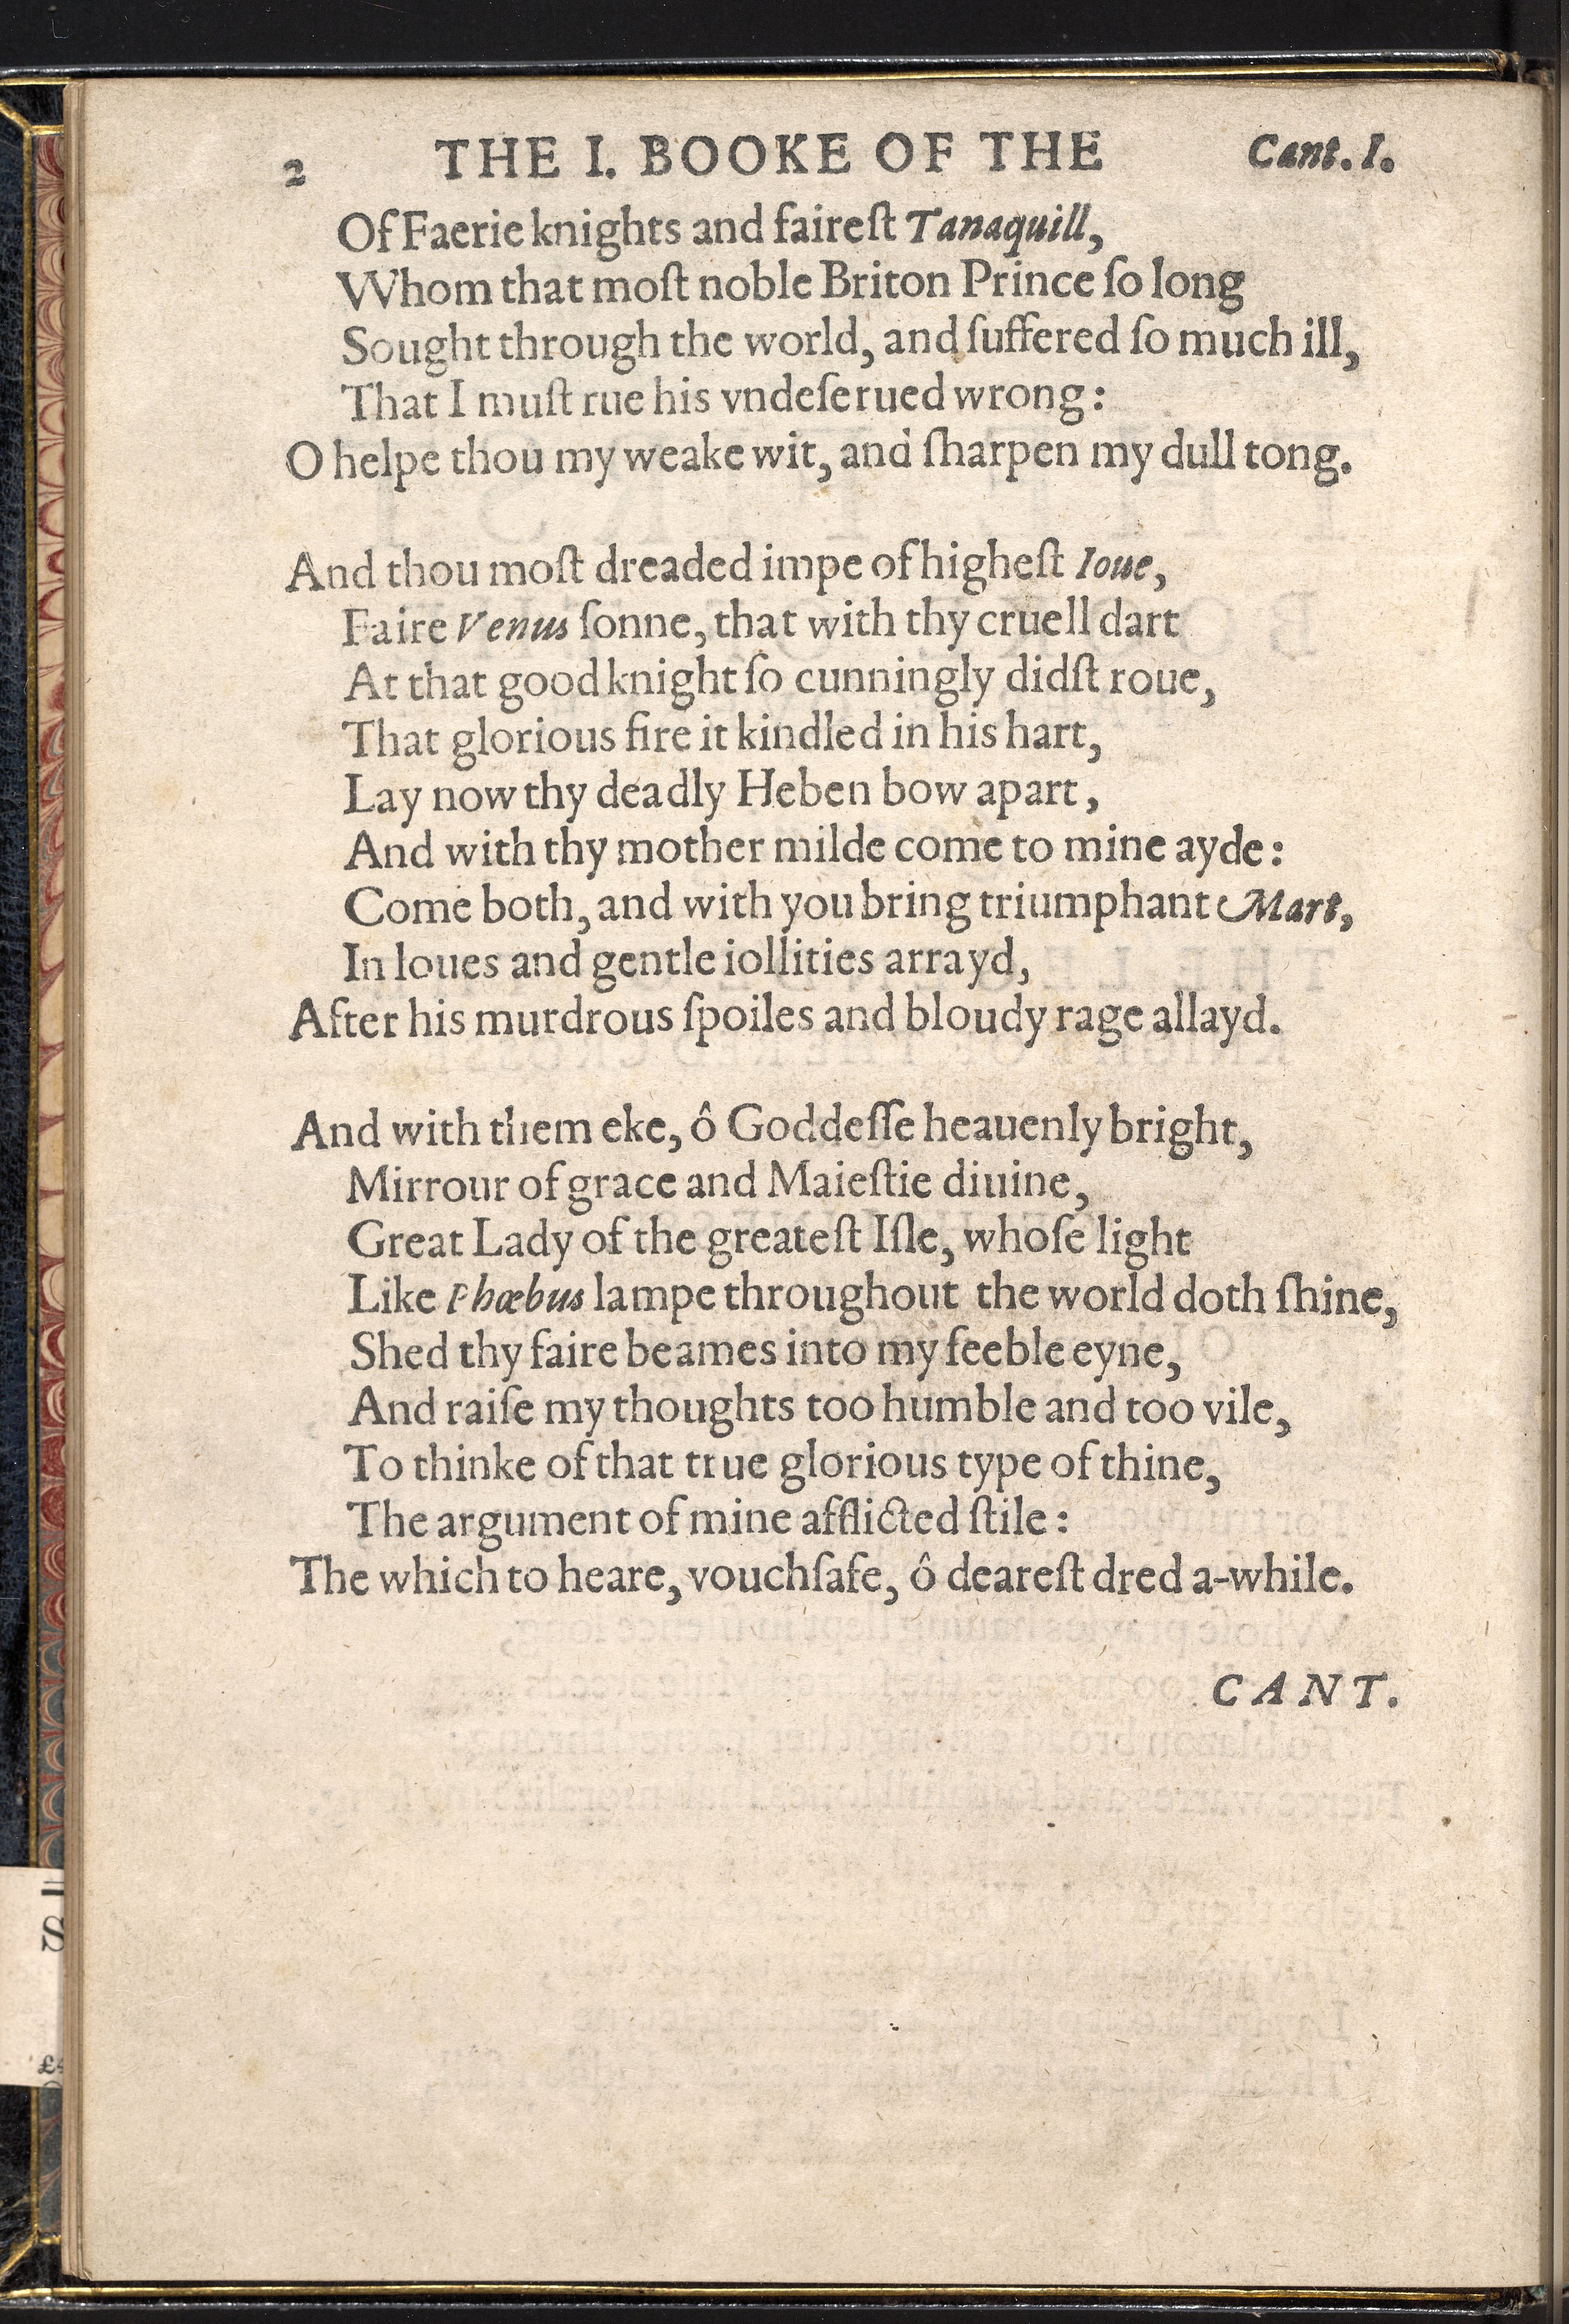 2 THE I. BOOKE OF THE Cant. I.
Of Faerie knights and faireſt Tanaquill,
Whom that moſt noble Briton Prince ſo long
Sought through the world, and ſuffered ſo much ill,
That I muſt rue his vndeſerued wrong:
O helpe thou my weake wit, and ſharpen my dull tong.
And thou moſt dreaded impe of higheſt Ioue,
Faire Venus ſonne, that with thy cruell dart
At that good knight ſo cunningly didſt roue,
That glorious fire it kindled in his hart,
Lay now thy deadly Heben bow apart,
And with thy mother milde come to mine ayde:
Come both, and with you bring triumphant Mart,
In loues and gentle iollities arrayd,
After his murdrous ſpoiles and bloudy rage allayd.
And with them eke, ô Goddeſſe heauenly bright,
Mirrour of grace and Maieſtie diuine,
Great Lady of the greateſt Iſle, whoſe light
Like Phœbus lampe throughout the world doth ſhine,
Shed thy faire beames into my feeble eyne,
And raiſe my thoughts too humble and too vile,
To thinke of that true glorious type of thine,
The argument of mine afflicted ſtile:
The which to heare, vouchſafe, ô deareſt dred a-while.
CANT.